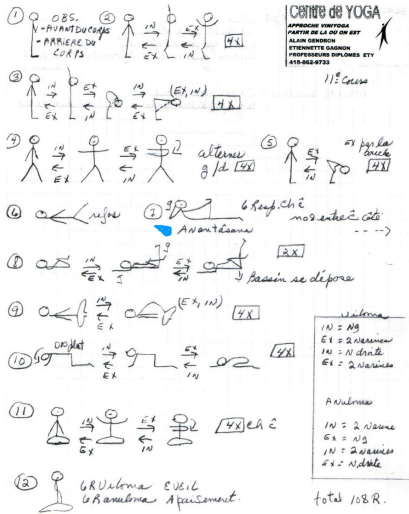 Centre de YOGA
APPROCHE VINIYOGA
PARTIR DE LA OU ON EST
ALAIN GENDRON
ETIENNETTE GAGNON
PROFESSEURS DIPLOMÉS ETY
418-862-9733
11e Cours
1 OBS.
- AVANT DU CORPS
- ARRIERE DU CORPS
2 IN EX IN 4X
EX IN EX
3 IN EX IN (EX, IN) 4X
EX IN EX
4 IN EX alterner g/d 4X
EX IN
5 EX par la bouche 4X
IN
6 repos
7 g 6 Resp. Ch ĉ
Anantāsana nos entre ĉ côté
8 IN EX 2X
EX IN
g
Bassin se dépose
9 IN (EX, IN) 4X
EX
10 on plat IN EX 4X
EX IN
11 IN EX 4X ch ĉ
EX IN
12 6R Viloma EVEIL
6R anuloma Apaisement.
Viloma
IN = Ng
EX = 2 Narines
IN = N droite
EX = 2 Narines
Anuloma
IN = 2 Narines
EX = Ng
IN = 2 narines
EX = N. droite
total 108 R.